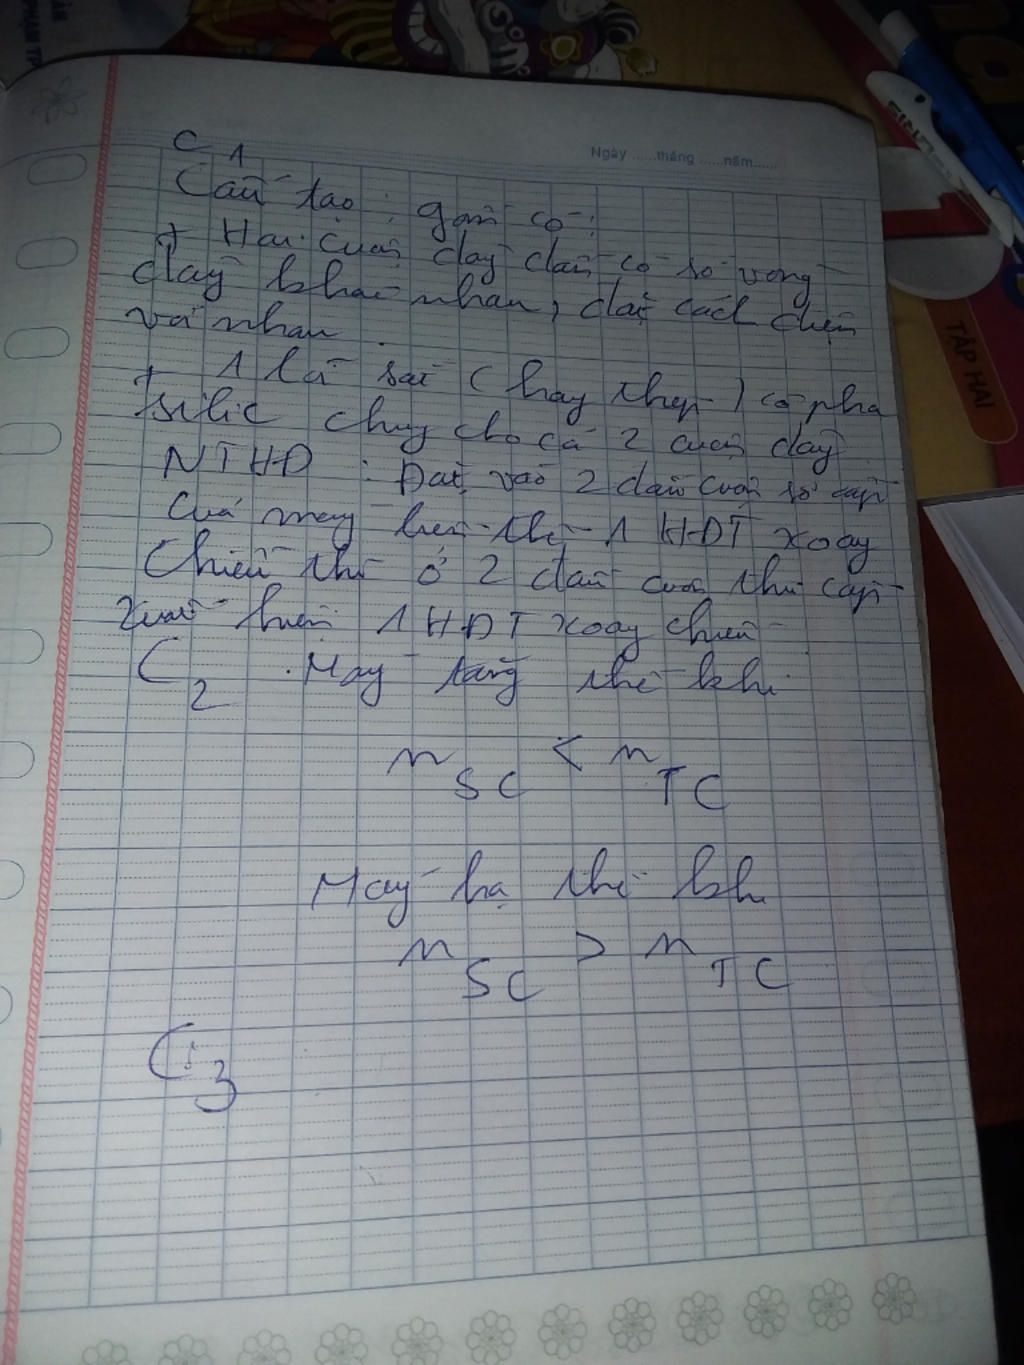 C1
Cấu tạo : gồm có :
+ Hai cuộn dây dẫn có số vòng
dây khác nhau, đặt cách điện
với nhau.
+ 1 lõi sắt (hay thép) có pha
silic chung cho cả 2 cuộn dây
NTHĐ : Đặt vào 2 đầu cuộn sơ cấp
của máy biến thế 1 HĐT xoay
chiều thì ở 2 đầu cuộn thứ cấp
xuất hiện 1 HĐT xoay chiều
C2 . Máy tăng thế khi
n SC < n TC
Máy hạ thế khi
n SC > n TC
C3
Ngày ......tháng ......năm......
TẬP HAI